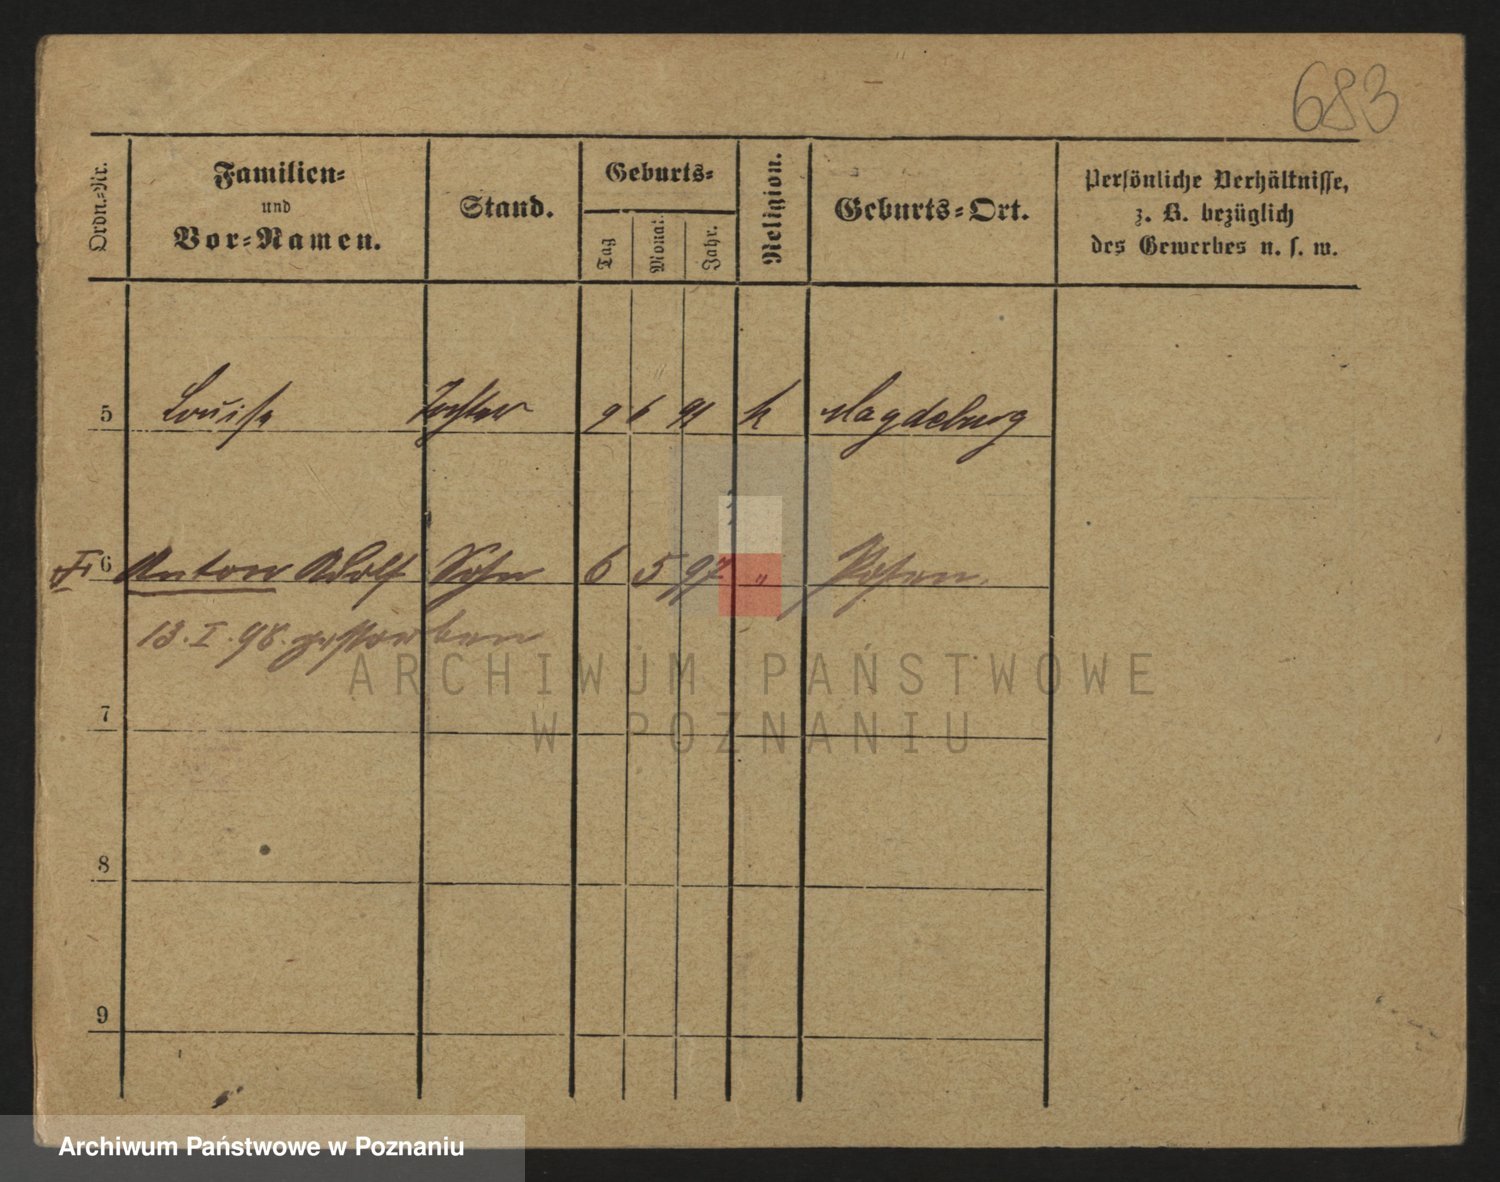 683
Ordn.-Nr.
Familien-
und
Vor-Namen.
Stand.
Geburts-
Tag
Monat
Jahr.
Religion.
Geburts-Ort.
Persönliche Verhältnisse,
z. B. bezüglich
des Gewerbes u. s. w.
5 Louise Tochter 9 6 91 k Magdeburg
6 Anton Adolf Sohn 6 5 97 " Posen.
13. I. 98. gestorben
ARCHIWUM PAŃSTWOWE
W POZNANIU
7
8
9
Archiwum Państwowe w Poznaniu